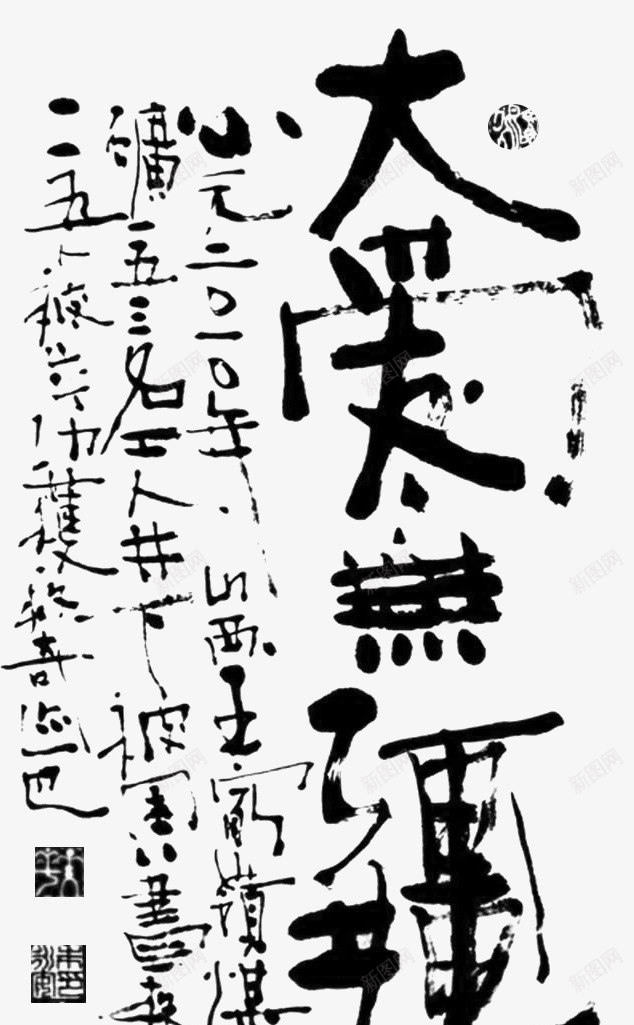 大愛無疆
公元二〇一〇年山西王家嶺煤
礦一五三名工人井下被困八晝夜
一一五人被成功獲救奇迹也
新图网